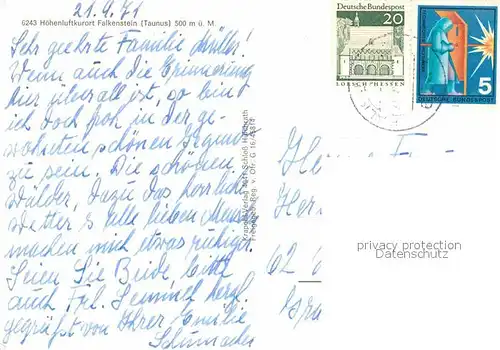 21.4.71
6243 Höhenluftkurort Falkenstein (Taunus) 500 m ü. M.
Sehr geehrte Familie Müller!
Wenn auch die Erinnerung
hier überall ist, so bin
ich doch froh in der ge-
wohnten schönen Gegend
zu sein. Die schönen
Wälder, dazu das herrliche
Wetter & alle lieben Menschen
machen mich etwas ruhiger.
Seien Sie Beide bitte
auch Frl. Semmel herzl.
gegrüßt von Ihrer Emilie
Schumacher
Deutsche Bundespost
20
LORSCH/HESSEN
5
DEUTSCHE BUNDESPOST
62
privacy protection
Datenschutz